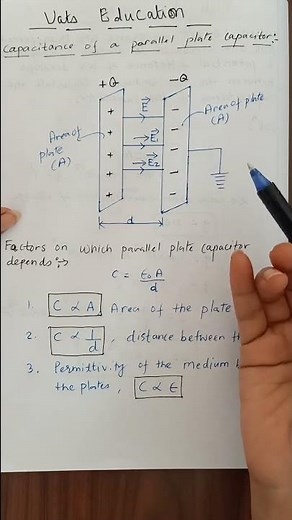 Vats Education
Capacitance of a parallel plate capacitor:-
+Q
-Q
+
+
+
+
+
-
-
-
-
-
-
E
E1
E2
Area of
plate
(A)
Area of plate
(A)
d
Factors on which parallel plate capacitor
depends:->
C = ε0 A / d
1. C ∝ A Area of the plate
2. C ∝ 1/d , distance between
3. Permittivity of the medium
the plates, C ∝ ε